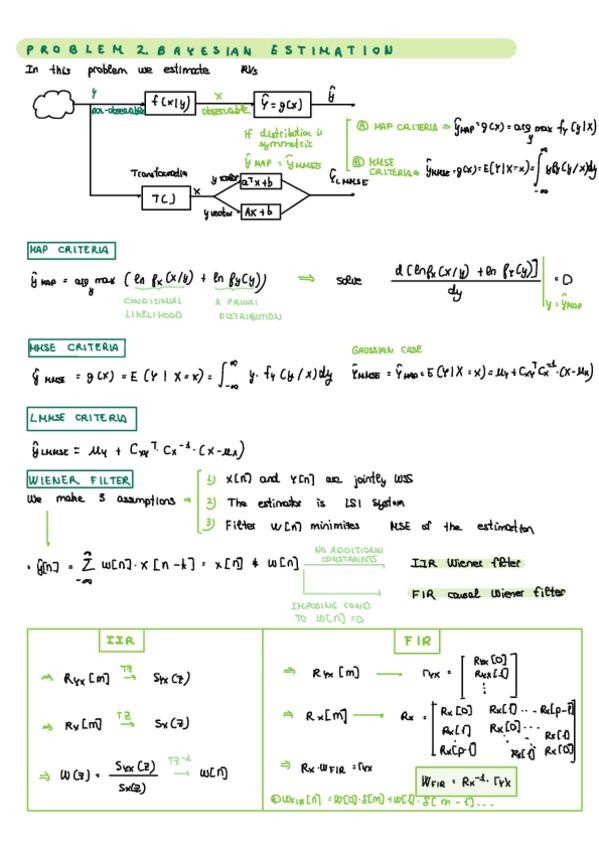 PROBLEM 2. BAYESIAN ESTIMATION
In this problem we estimate RVs
Y
non-observable
f(x|y)
X
observable
Ŷ = g(x)
ŷ
If distribution is
symmetric
ŷ MAP = ŷ MMSE
Ⓐ MAP CRITERIA ⇒ ŷ MAP = g(x) = arg max fy (y|X)
Ⓑ MMSE
CRITERIA ⇒ ŷ MMSE = g(x) = E(Y|X=x) = ∫ y fy (y/x) dy
∞
-∞
T[.]
X
y scalar
aᵀx+b
y vector
Ax+b
ŷ LMMSE
MAP CRITERIA
ŷ MAP = arg max (ln fx (x/y) + ln fy(y)) ⇒ solve d[ln fx (x/y) + ln fy (y)] / dy | = 0
y
y = ŷ MAP
CONDITIONAL
LIKELIHOOD
A PRIORI
DISTRIBUTION
MMSE CRITERIA
GAUSSIAN CASE
ŷ MMSE = g(x) = E(Y|X=x) = ∫ y · fy (y/x) dy
ŷ MMSE = ŷ MAP = E(Y|X=x) = μy + Cxyᵀ Cx⁻¹ · (x-μx)
LMMSE CRITERIA
ŷ LMMSE = μy + Cxyᵀ · Cx⁻¹ · (x-μx)
WIENER FILTER
We make 3 assumptions ⇒
1) X[n] and Y[n] are jointly WSS
2) The estimator is LSI system
3) Filter w[n] minimites MSE of the estimation
· ŷ[n] = Σ w[n] · x[n-k] = x[n] * w[n]
NO ADDITIONAL
CONSTRAINTS
IIR Wiener filter
IMPOSING COND
TO w[n] = 0
FIR causal Wiener filter
IIR
⇒ Ryx[m] → Syx(z)
TZ
⇒ Rx[m] → Sx(z)
TZ
⇒ W(z) = Syx(z) / Sx(z) → w[n]
TZ⁻¹
FIR
⇒ Ryx[m] → ryx = [Ryx[0]
Ryx[1]
⋮]
⇒ Rx[m] → Rx = [Rx[0] Rx[1] ... Rx[p-1]
Rx[1] Rx[0] ... Rx[1]
Rx[p-1] Rx[1] Rx[0]]
⇒ Rx · wFIR = ryx
WFIR = Rx⁻¹ · ryx
wFIR[n] = w[0] · δ[m] + w[1] · δ[m-1] ...